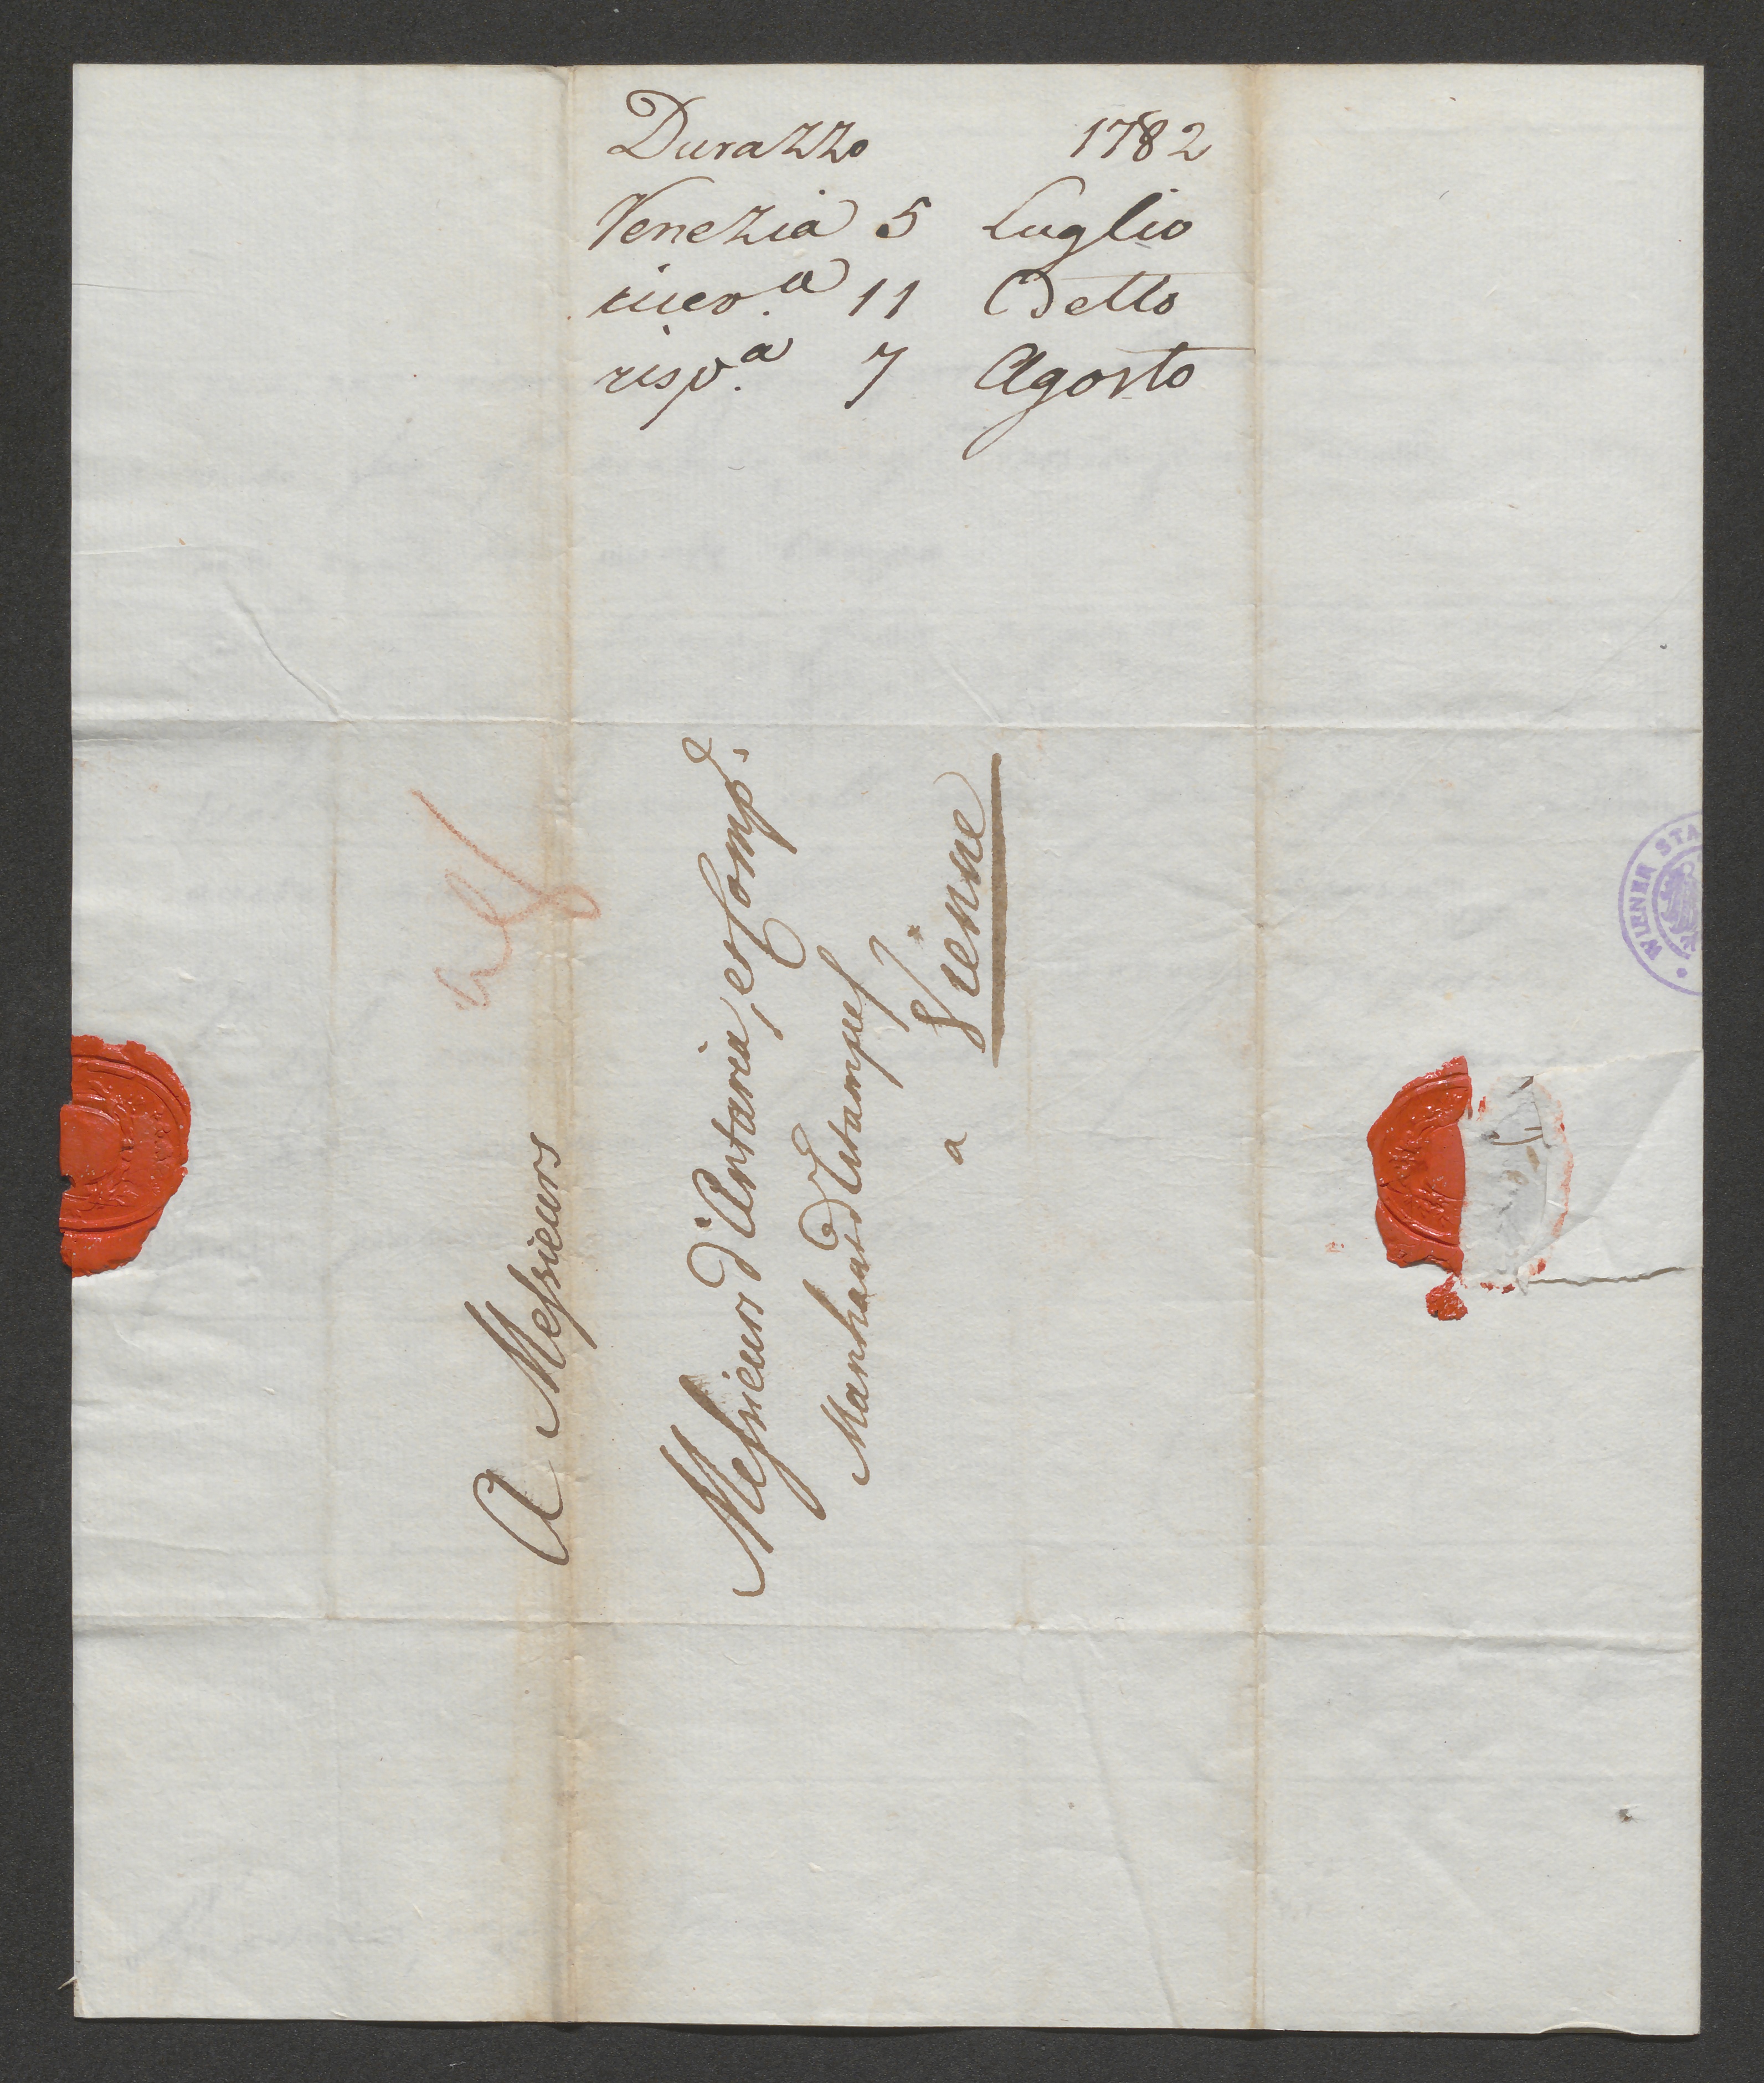 Durazzo 1782
Venezia 5 Luglio
ricev.a 11 Detto
risp.a 7 Agosto
A Messieurs
Messieurs d'Artaria, et Comp.e
Marchands d'Estampes
a Vienne
WIENER STA